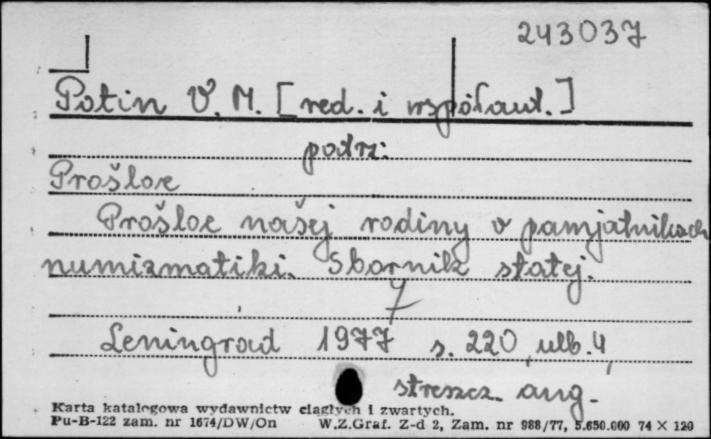 243037
Potin V. M. [red. i współaut.]
podrz:
Prošloe
Prošloe našej rodiny v pamjatnikach
numizmatiki. Sbornik statej.
7
Leningrad 1977 s. 220, ulb. 4,
streszcz. ang.
Karta katalogowa wydawnictw ciągłych i zwartych.
Pu-B-122 zam. nr 1674/DW/On W.Z.Graf. Z-d 2, Zam. nr 988/77, 5.650.000 74 × 120